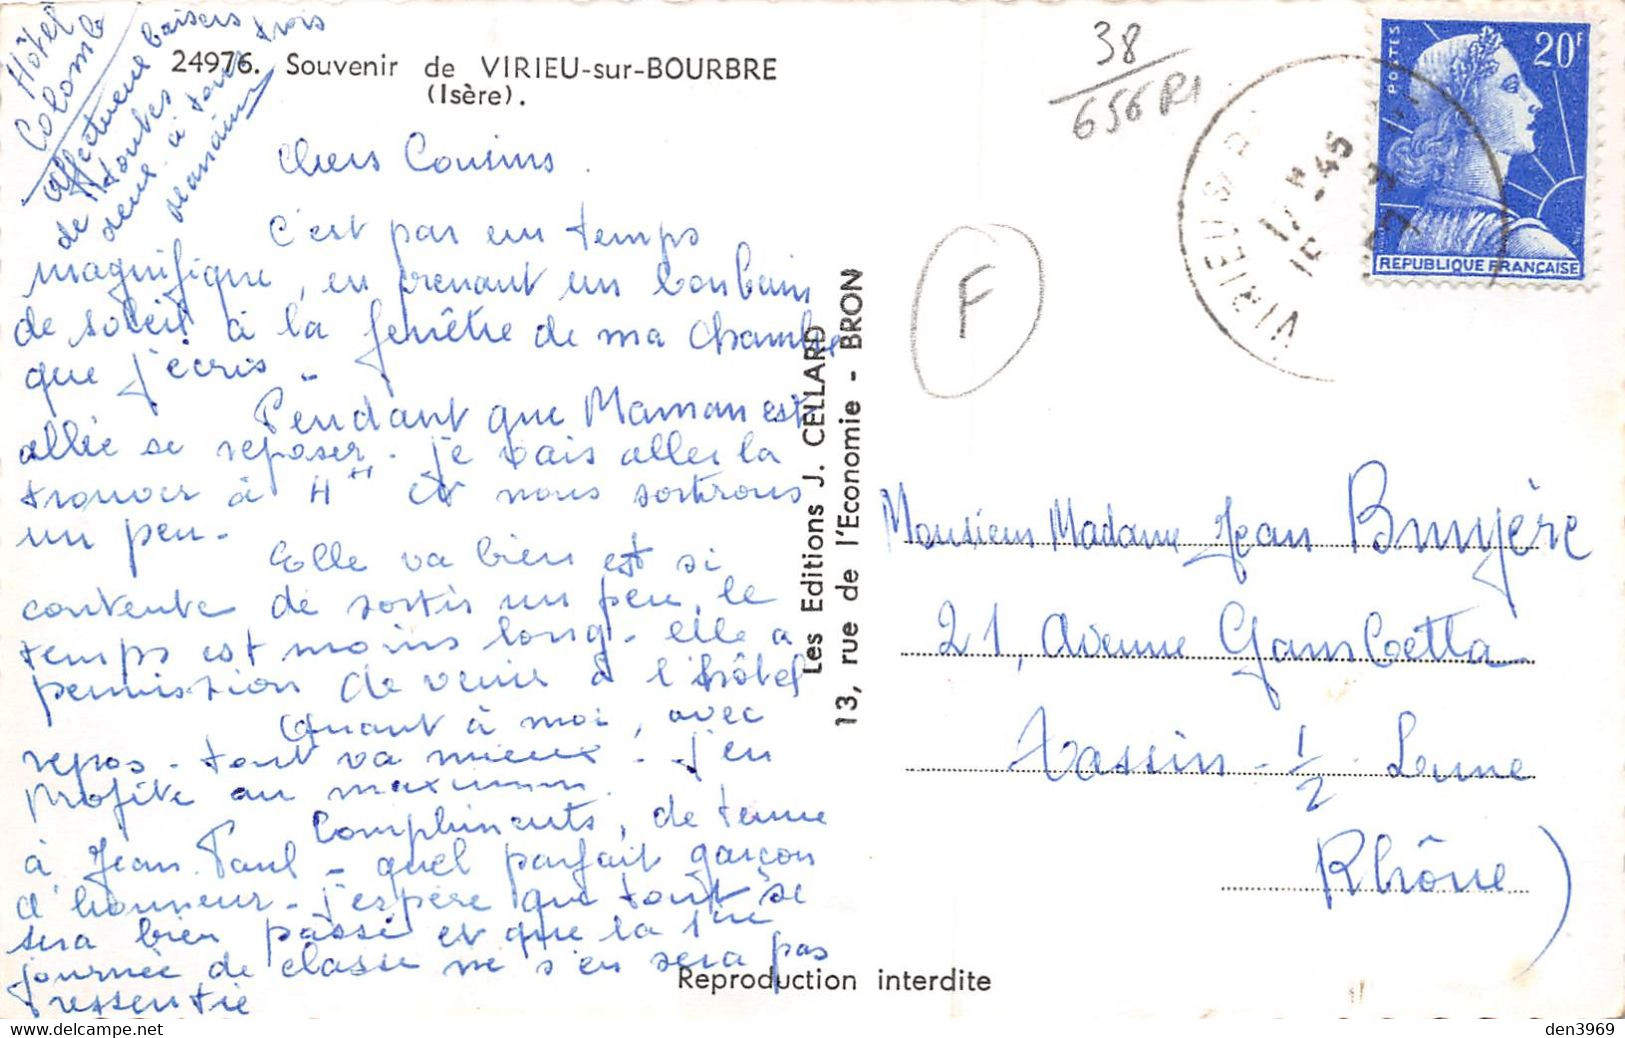 Hôtel
Colomb
affectueux baisers
de toutes
deux à tous trois
24976. Souvenir de VIRIEU-sur-BOURBRE
(Isère).
38
656 R1
Chers Cousins
C'est par un temps
magnifique, en prenant un bon bain
de soleil à la fenêtre de ma chambre
que j'écris.
Pendant que Maman est
allée se reposer. Je vais aller la
trouver à 4 H et nous sortirons
un peu.
Elle va bien est si
contente de sortir un peu, le
temps est moins long. elle a
permission de venir à l'hôtel
Quant à moi, avec
repos - tout va mieux. J'en
profite au maximum.
Compliments, de tenue
à Jean Paul - quel parfait garçon
d'honneur - j'espère que tout se
sera bien passé et que la 1ère
journée de classe ne s'en sera pas
ressentie
Les Editions J. CELLARD
13, rue de l'Economie - BRON
F
VIRIEU S
POSTES
20F
REPUBLIQUE FRANÇAISE
Monsieur Madame Jean Bruyère
21, Avenue Gambetta
Tassin - 1/2 - Lune
Rhône)
Reproduction interdite
den3969